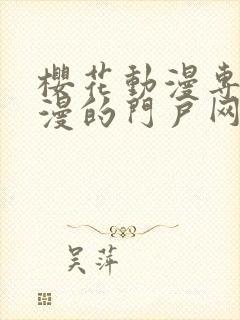 櫻花動漫専
漫的門戶网
吴萍